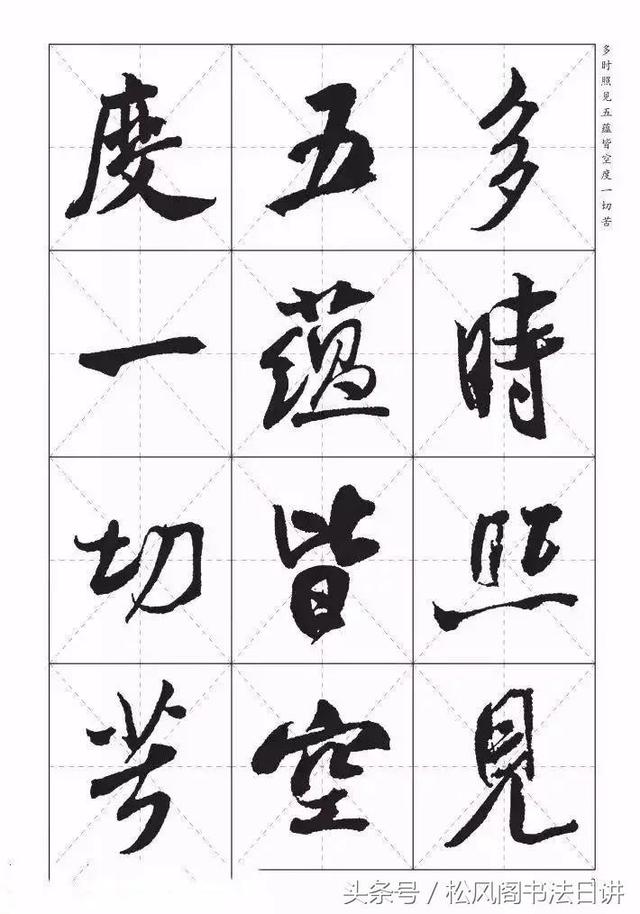 多时照见五蕴皆空度一切苦
多時照見
五蕴皆空
度一切苦
头条号／松风阁书法日讲